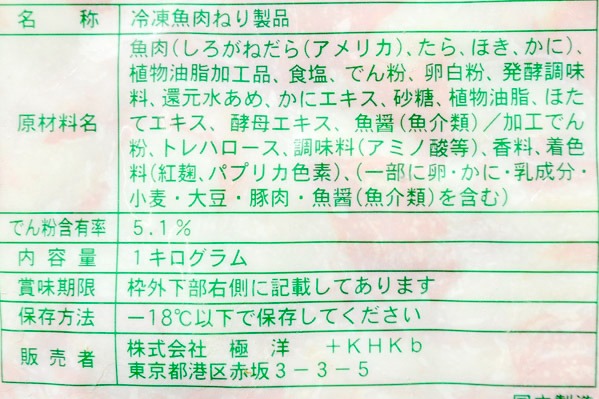 名称 冷凍魚肉ねり製品
原材料名 魚肉(しろがねだら(アメリカ)、たら、ほき、かに)、
植物油脂加工品、食塩、でん粉、卵白粉、発酵調味
料、還元水あめ、かにエキス、砂糖、植物油脂、ほた
てエキス、酵母エキス、魚醤(魚介類)/加工でん
粉、トレハロース、調味料(アミノ酸等)、香料、着色
料(紅麹、パプリカ色素)、(一部に卵・かに・乳成分・
小麦・大豆・豚肉・魚醤(魚介類)を含む)
でん粉含有率 5.1%
内容量 1キログラム
賞味期限 枠外下部右側に記載してあります
保存方法 −18℃以下で保存してください
販売者 株式会社 極洋 +KHKb
東京都港区赤坂3-3-5